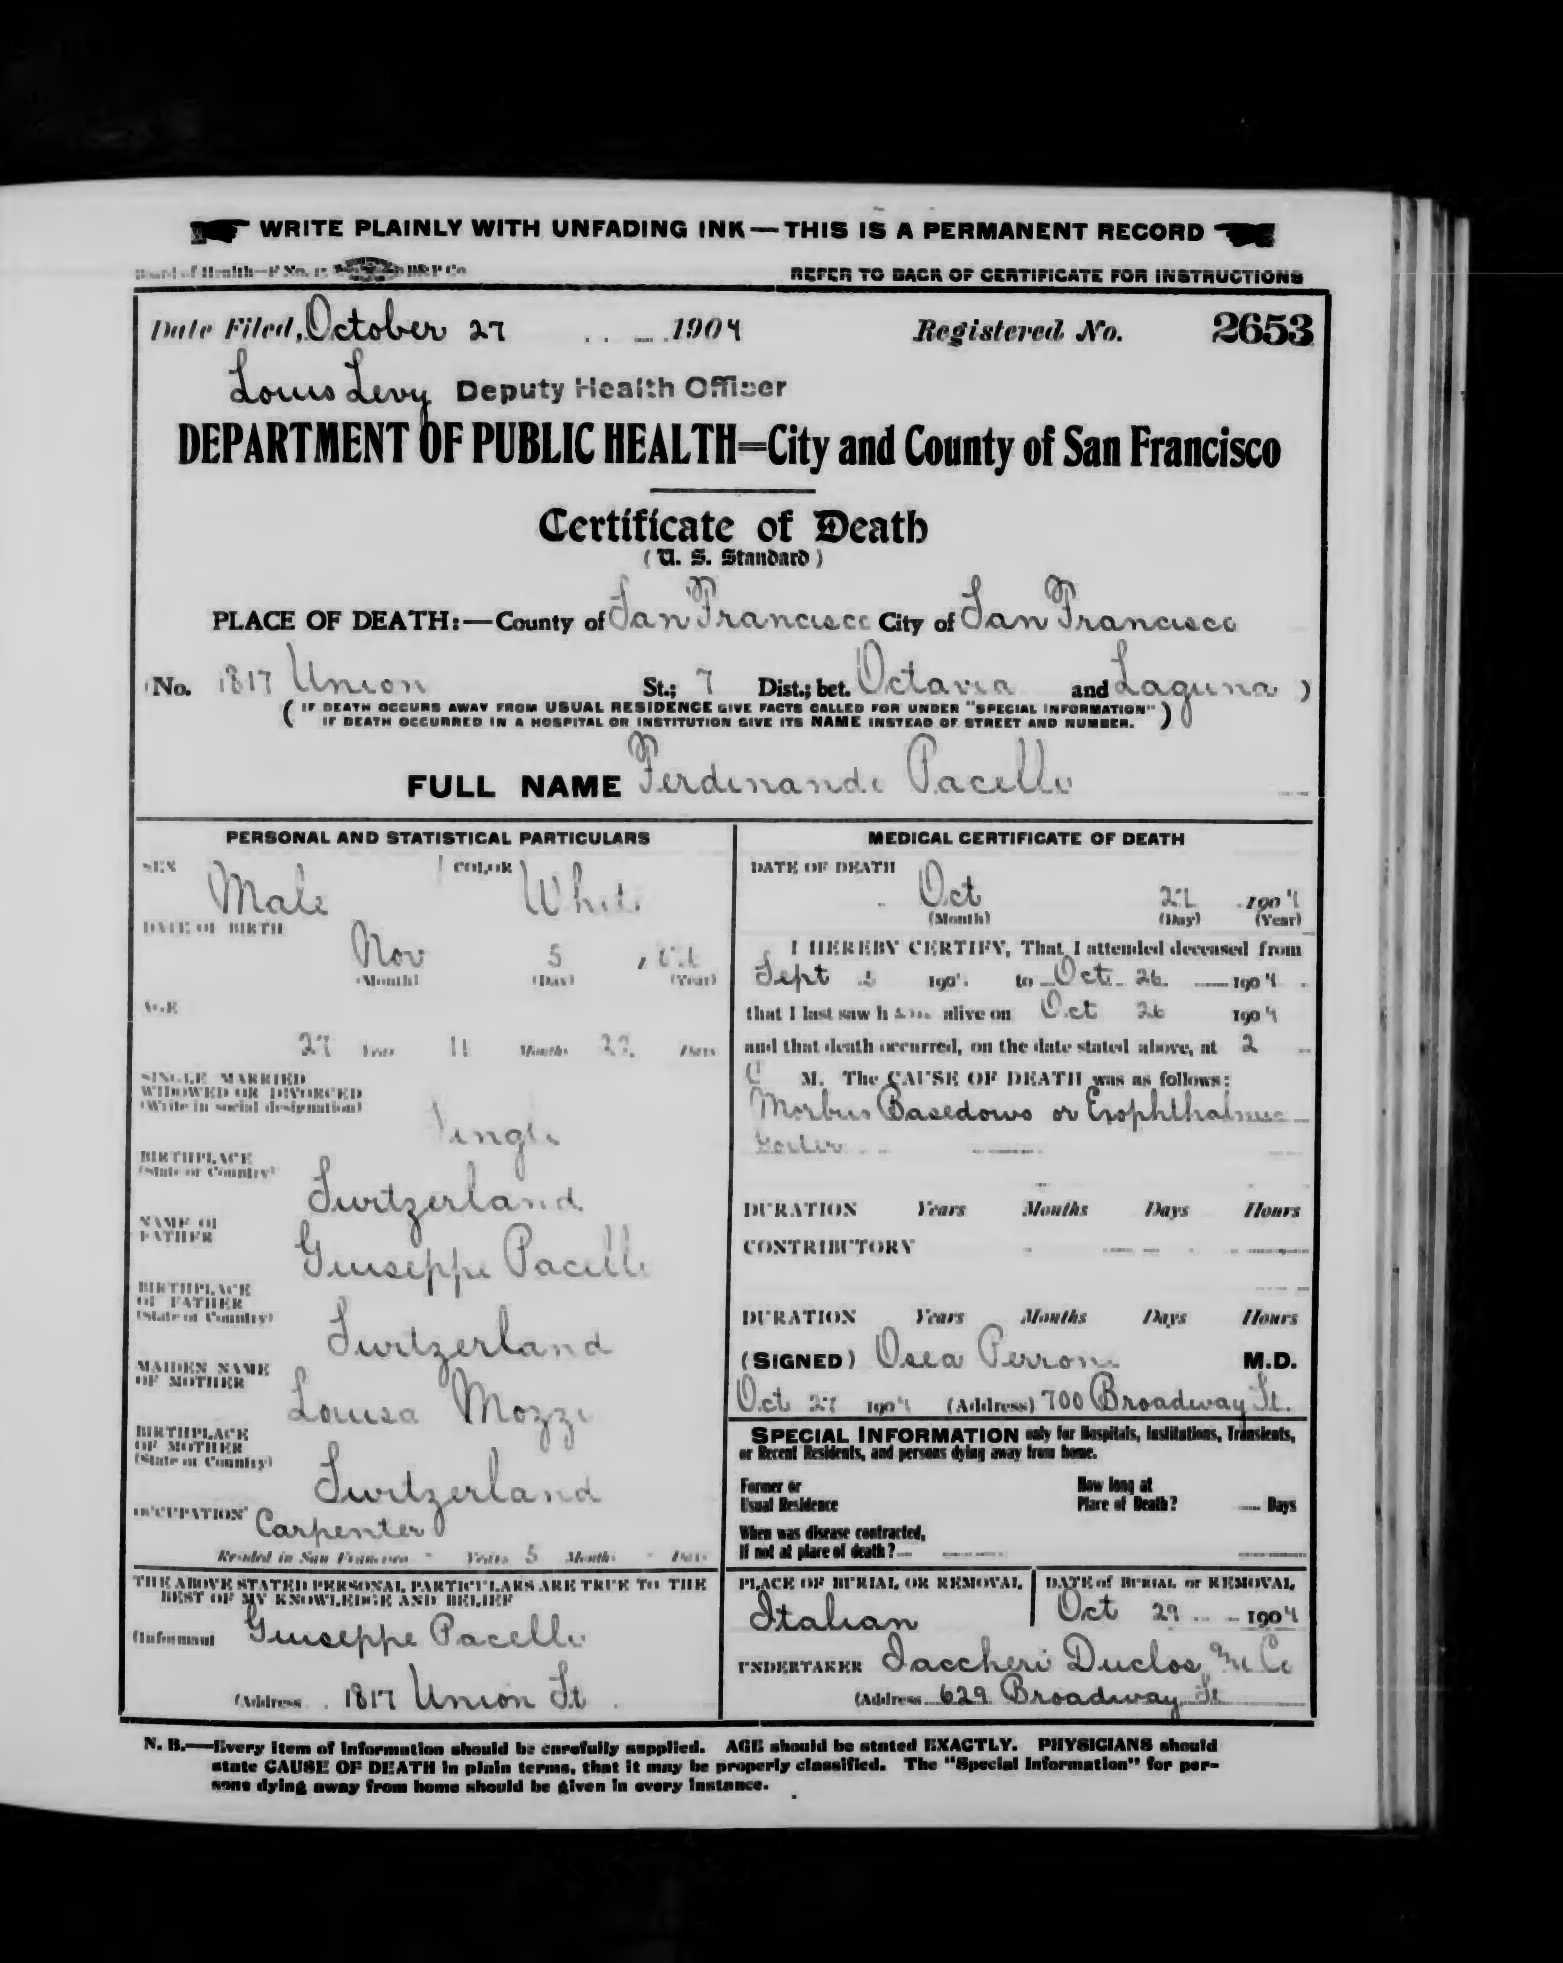 WRITE PLAINLY WITH UNFADING INK—THIS IS A PERMANENT RECORD
Board of Health—F No. 15 B&P Co
REFER TO BACK OF CERTIFICATE FOR INSTRUCTIONS
Date Filed, October 27 1904 Registered No. 2653
Louis Levy Deputy Health Officer
DEPARTMENT OF PUBLIC HEALTH=City and County of San Francisco
Certificate of Death
(U. S. Standard)
PLACE OF DEATH:—County of San Francisco City of San Francisco
(No. 1817 Union St.; 7 Dist.; bet. Octavia and Laguna)
(IF DEATH OCCURS AWAY FROM USUAL RESIDENCE GIVE FACTS CALLED FOR UNDER "SPECIAL INFORMATION"
IF DEATH OCCURRED IN A HOSPITAL OR INSTITUTION GIVE ITS NAME INSTEAD OF STREET AND NUMBER.)
FULL NAME Ferdinando Pacello
PERSONAL AND STATISTICAL PARTICULARS
SEX Male COLOR White
DATE OF BIRTH
Nov 5
(Month) (Day) (Year)
AGE
27 Years 11 Months 22 Days
SINGLE, MARRIED
WIDOWED OR DIVORCED
(Write in social designation)
Single
BIRTHPLACE
(State or Country)
Switzerland
NAME OF
FATHER
Giuseppe Pacello
BIRTHPLACE
OF FATHER
(State or Country)
Switzerland
MAIDEN NAME
OF MOTHER
Louisa Mozzi
BIRTHPLACE
OF MOTHER
(State or Country)
Switzerland
OCCUPATION Carpenter
Resided in San Francisco - Years 5 Months - Days
THE ABOVE STATED PERSONAL PARTICULARS ARE TRUE TO THE
BEST OF MY KNOWLEDGE AND BELIEF
(Informant Giuseppe Pacello
(Address 1817 Union St
MEDICAL CERTIFICATE OF DEATH
DATE OF DEATH
Oct 27 1904
(Month) (Day) (Year)
I HEREBY CERTIFY, That I attended deceased from
Sept 190 to Oct. 26. 1904
that I last saw him alive on Oct 26 1904
and that death occurred, on the date stated above, at 2
M. The CAUSE OF DEATH was as follows:
Morbus Basedows or Exophthalmic
Goiter
DURATION Years Months Days Hours
CONTRIBUTORY
DURATION Years Months Days Hours
(SIGNED) Osea Perrone M.D.
Oct 27 1904 (Address) 700 Broadway St.
SPECIAL INFORMATION only for Hospitals, Institutions, Transients,
or Recent Residents, and persons dying away from home.
Former or
Usual Residence
How long at
Place of Death? Days
When was disease contracted,
If not at place of death?
PLACE OF BURIAL OR REMOVAL
Italian
DATE of BURIAL or REMOVAL
Oct 29 1904
UNDERTAKER Iaccheri Duclos & Co
(Address 629 Broadway St
N. B.—Every item of information should be carefully supplied. AGE should be stated EXACTLY. PHYSICIANS should
state CAUSE OF DEATH in plain terms, that it may be properly classified. The "Special Information" for per-
sons dying away from home should be given in every instance.